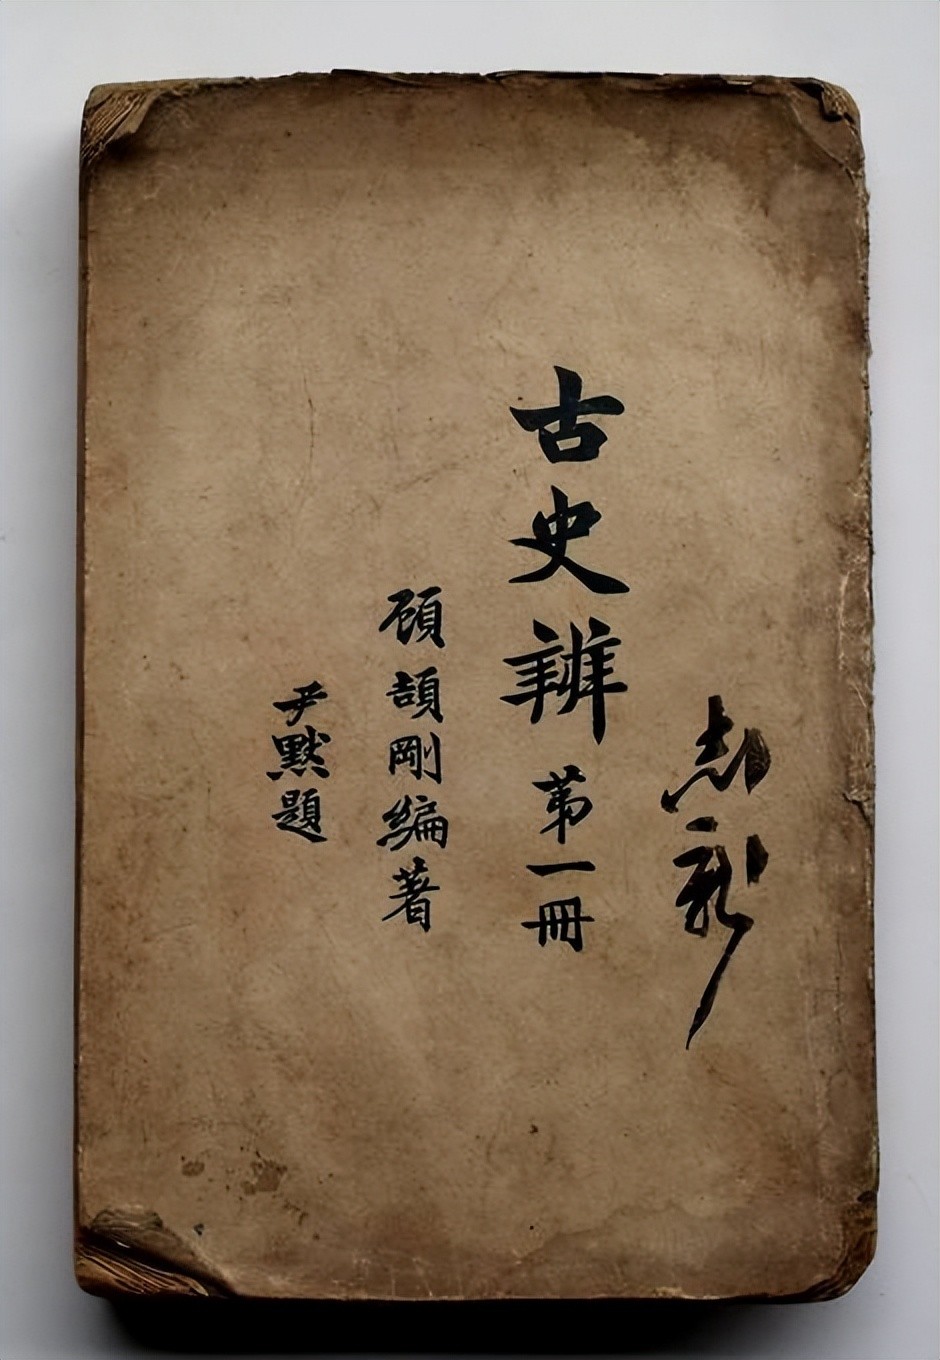 古史辨第一冊
顧頡剛編著
尹黙題